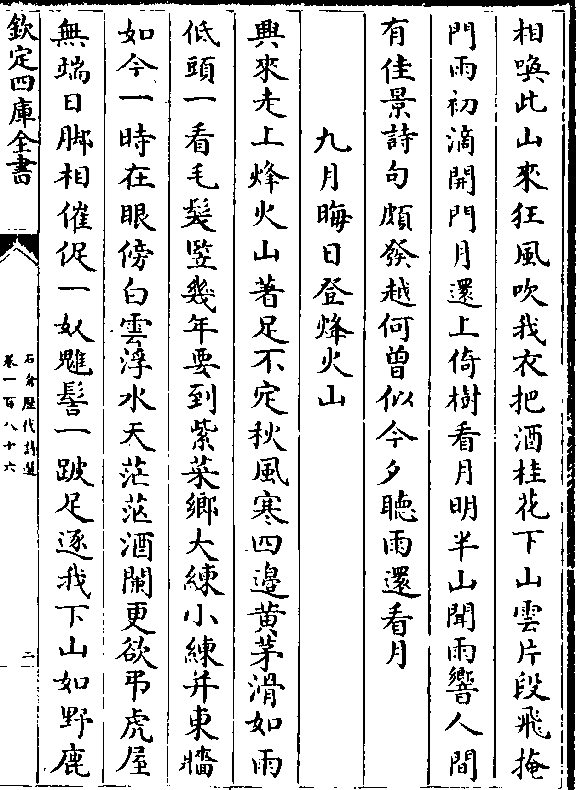 相喚此山來狂風吹我衣把酒桂花下山雲片段飛掩
門雨初滴開門月還上倚樹看月明半山聞雨響人間
有佳景詩句頗發越何曾似今夕聽雨還看月
九月晦日登烽火山
興來走上烽火山著足不定秋風寒四邉黄茅滑如雨
低頭一看毛髮竪幾年要到紫菜鄉大練小練并東牆
如今一時在眼傍白雲浮水天茫茫酒闌更欲弔虎屋
無端日脚相催促一奴魋髻一跛足逐我下山如野鹿
欽定四庫全書
石倉歷代詩選
卷一百八十六
二